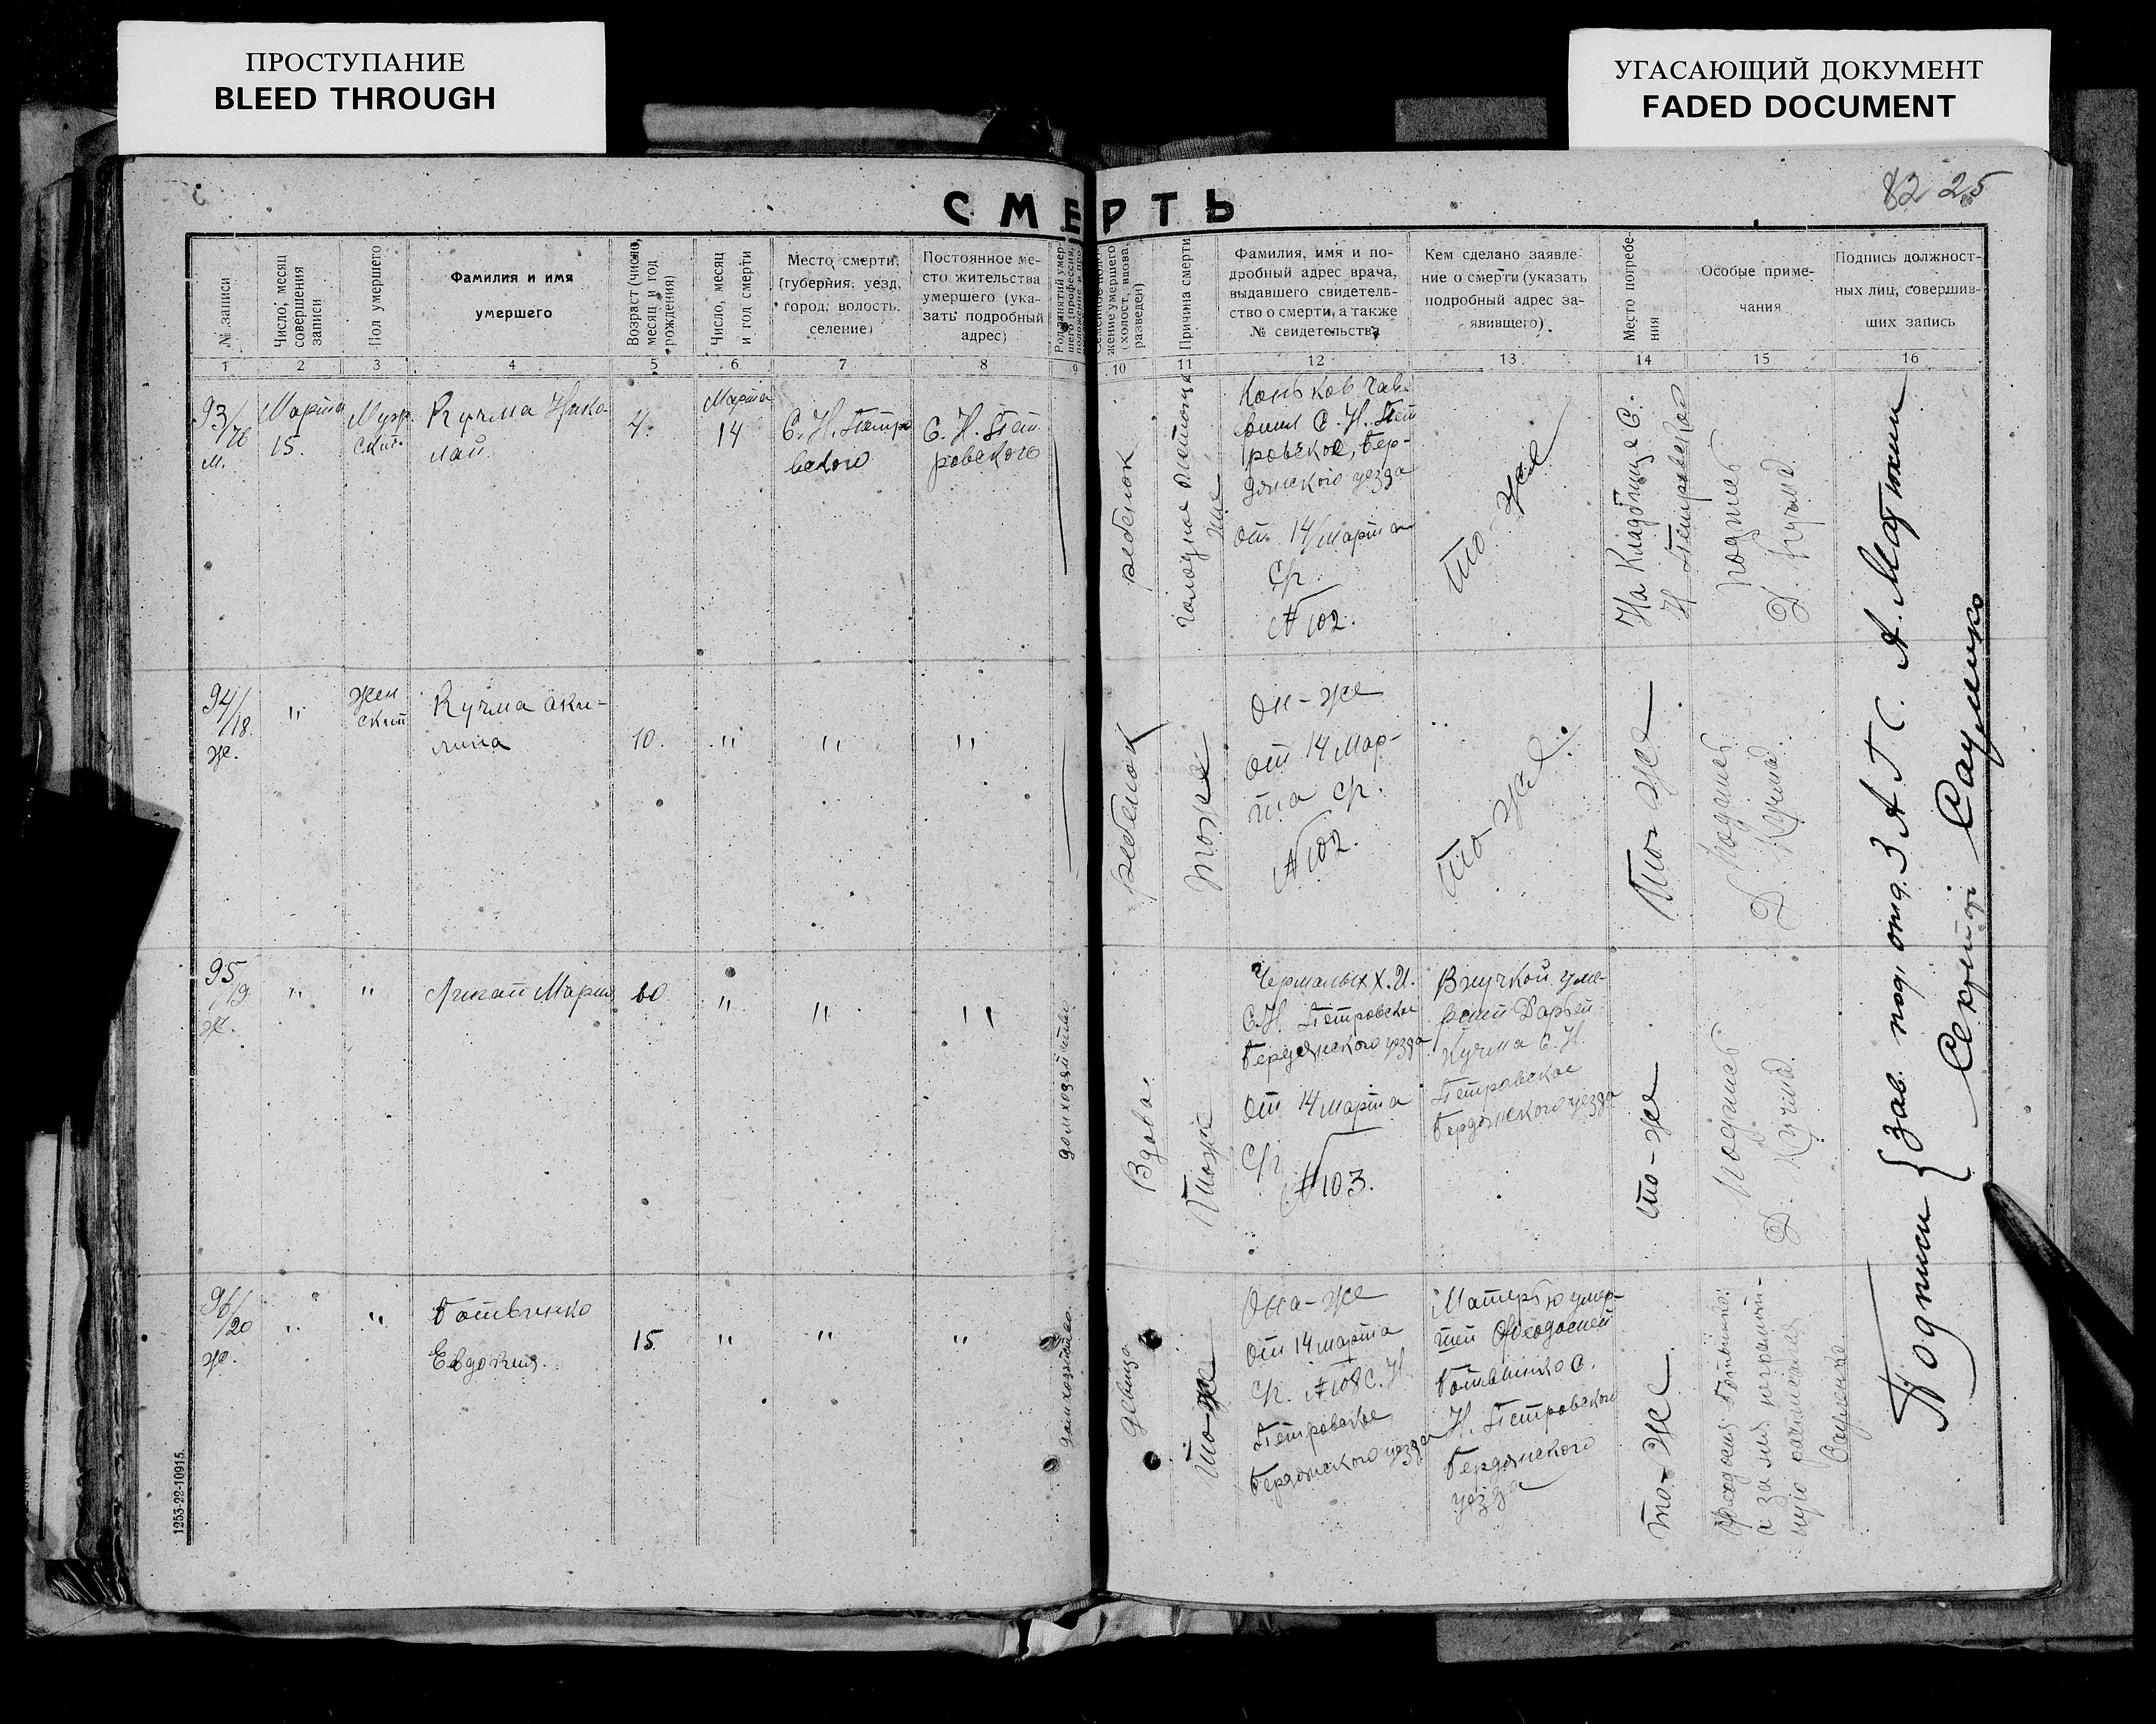 ПРОСТУПАНИЕ
BLEED THROUGH
УГАСАЮЩИЙ ДОКУМЕНТ
FADED DOCUMENT
82 25
СМЕРТЬ
№ записи
Число, месяц
совершения
записи
Пол умершего
Фамилия и имя
умершего
Возраст (число,
месяц и год
рождения)
Число, месяц
и год смерти
Место смерти,
(губерния, уезд,
город, волость,
селение)
Постоянное ме-
сто жительства
умершего (ука-
зать подробный
адрес)
Род занятий умер-
шего (профессия,
жение умершего
(холост, вдова,
разведен)
Причина смерти
Фамилия, имя и по-
дробный адрес врача,
выдавшего свидетель-
ство о смерти, а также
№ свидетельства
Кем сделано заявле-
ние о смерти (указать
подробный адрес за-
явившего)
Место погребе-
ния
Особые приме-
чания
Подпись должност-
ных лиц, совершив-
ших запись
1 2 3 4 5 6 7 8 9 10 11 12 13 14 15 16
93/76
м.
Марта
15.
Муж.
ский.
Кучма Нико-
лай.
4.
Марта
14
С. Н. Петро
вского
С. Н. Пет
ровского
ребенок
голодное
Коньков Гав-
С. Н. Пет
ровское, Бер-
дянского уезда
от 14 марта
с/г.
№ 102.
то-же
На Кладбище С.
Н Петровское
подпись
Д. Кучма
94/18.
ж.
"
Жен
ский
Кучма Аки-
лина
10.
"
"
"
ребенок
тоже
Он-же
от 14 Мар-
та с/г.
№ 102.
то-же.
то-же
подпись
Д. Кучма
95/19
ж.
"
"
Мария
60
"
"
"
домхозяйство
Вдова.
тоже
Чермалых Х. И.
С. Н. Петровское
Бердянского уезда
от 14 марта
с/г
№ 103.
Внучкой уме-
ршей Дарьей
Кучма С. Н.
Петровское
Бердянского уезда
то-же
Подпись
Д. Кучма
96/20
ж.
"
"
Ботвинко
Евдокия.
15.
"
"
"
домхозяйство.
девица
то-же
Она-же
от 14 марта
с/г. № 108 С. Н.
Петровское
Бердянского уезда
Матерью умер-
шей Феодосией
Ботвинко С.
Н. Петровского
Бердянского
уезда
то-же
Феодосия Ботвинко:
а за нея неграмот-
ную расписался
Подписи { Зав. под. отд. З А Г С. А. Матюхин
Секретарь
1253-22-10915.